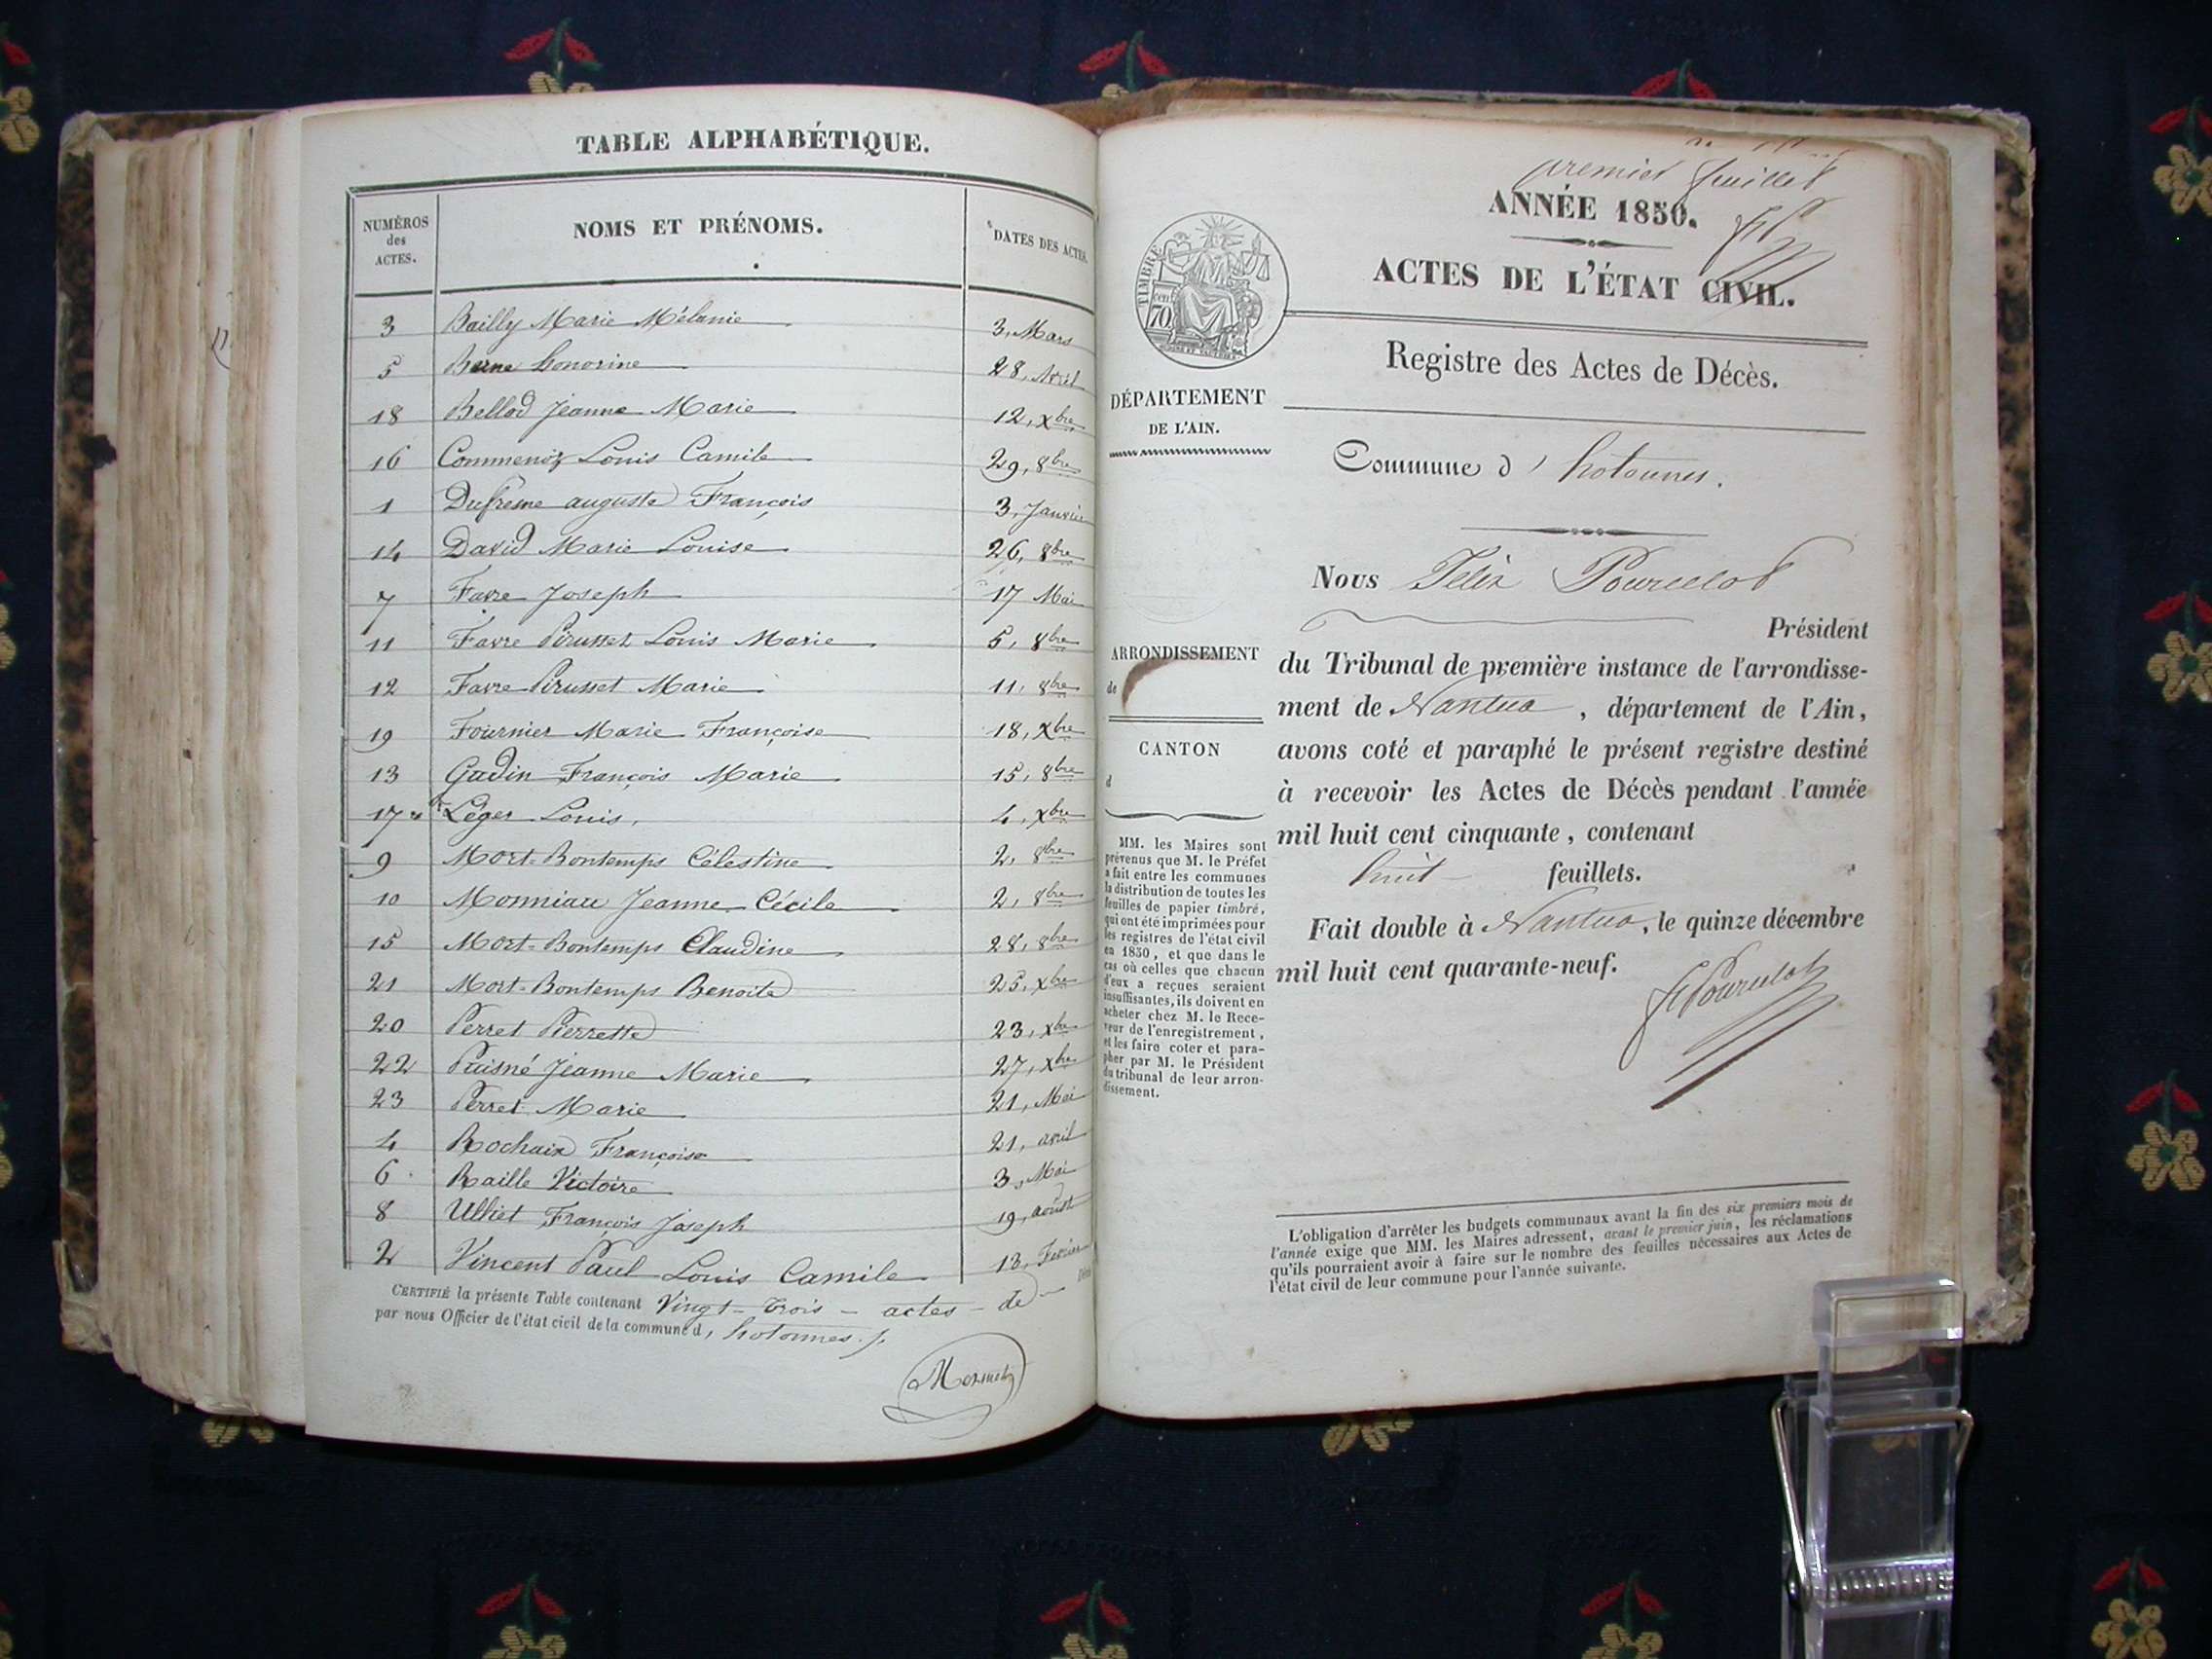 TABLE ALPHABÉTIQUE.
NUMÉROS des ACTES. NOMS ET PRÉNOMS. DATES DES ACTES.
3 Bailly Marie Mélanie 3, Mars
5 Berne honorine 28, Avril
18 Bellod Jeanne Marie 12, xbre
16 Commenoz Louis Camile 29, 8bre
1 Dufresne auguste François 3, Janvier
14 David Marie Louise 26, 8bre
7 Favre Joseph 17 Mai
11 Favre Pirusset Louis Marie 5, 8bre
12 Favre Pirusset Marie 11, 8bre
19 Fournier Marie Françoise 18, xbre
13 Gudin François Marie 15, 8bre
17 Léger Louis, 4, xbre
9 Mort-Bontemps Célestine 2, 8bre
10 Monniau Jeanne Cécile 2, 8bre
15 Mort-Bontemps Claudine 28, 8bre
21 Mort-Bontemps Benoite 25, xbre
20 Perret Pierrette 23, xbre
22 Puisné Jeanne Marie 27, xbre
23 Perret Marie 21, Mai
4 Rochaix Françoise 21, avril
6 Raille Victoire 3, Mai
8 Ulliet François Joseph 19, août
2 Vincent Paul Louis Camile 13, Fevrier
CERTIFIÉ la présente Table contenant Vingt-trois - actes - de
par nous Officier de l'état civil de la commune d, hotonnes
premier feuillet
ANNÉE 1850.
ACTES DE L'ÉTAT CIVIL.
TIMBRE
en
70
Registre des Actes de Décès.
DÉPARTEMENT
DE L'AIN.
Commune d' hotonnes.
Nous Félix Pourcelot
Président
ARRONDISSEMENT
de
CANTON
d
du Tribunal de première instance de l'arrondisse-
ment de Nantua, département de l'Ain,
avons coté et paraphé le présent registre destiné
à recevoir les Actes de Décès pendant l'année
mil huit cent cinquante, contenant
huit feuillets.
Fait double à Nantua, le quinze décembre
mil huit cent quarante-neuf.
F Pourcelot
MM. les Maires sont
prévenus que M. le Préfet
a fait entre les communes
la distribution de toutes les
feuilles de papier timbré,
qui ont été imprimées pour
les registres de l'état civil
en 1850, et que dans le
cas où celles que chacun
d'eux a reçues seraient
insuffisantes, ils doivent en
acheter chez M. le Rece-
veur de l'enregistrement,
et les faire coter et para-
pher par M. le Président
du tribunal de leur arron-
dissement.
L'obligation d'arrêter les budgets communaux avant la fin des six premiers mois de
l'année exige que MM. les Maires adressent, avant le premier juin, les réclamations
qu'ils pourraient avoir à faire sur le nombre des feuilles nécessaires aux Actes de
l'état civil de leur commune pour l'année suivante.